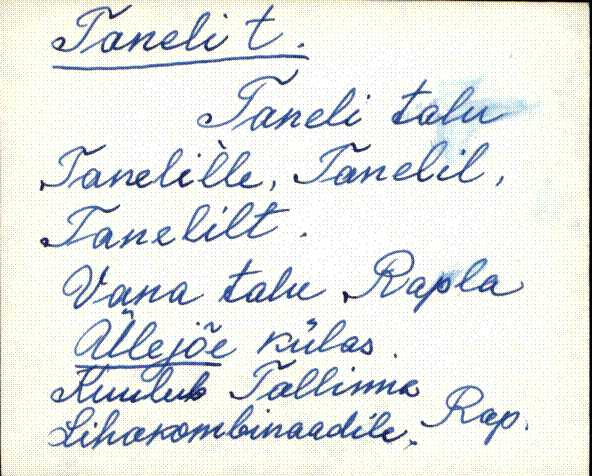 Taneli t.
Taneli talu
Tanelille, Tanelil,
Tanelilt.
Vana talu Rapla
Ällejõe külas.
Kuulub Tallinna
Lihakombinaadile. Rap.